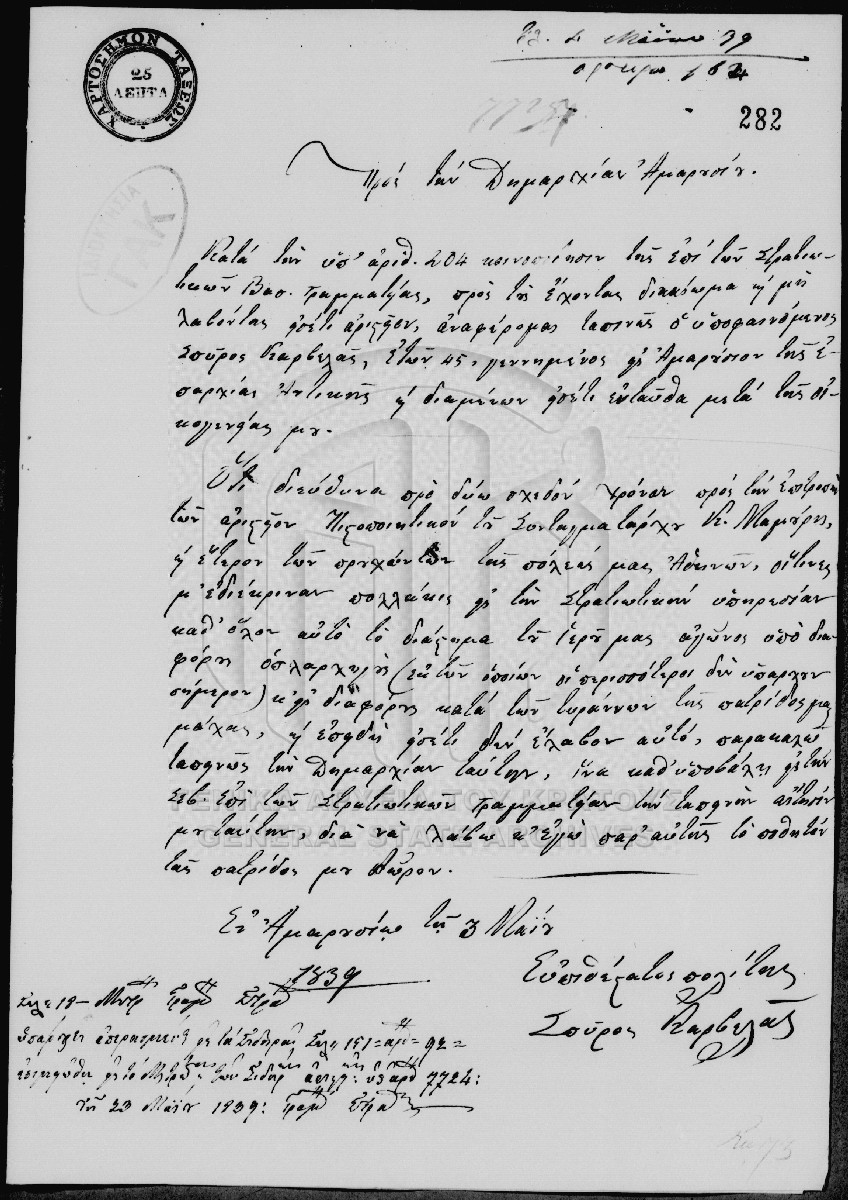 ΧΑΡΤΟΣΗΜΟΝ ΤΑΞΕΩΣ
25
ΛΕΠΤΑ
4 Μαΐου 39
282
ΙΔΙΟΚΤΗΣΙΑ
ΓΑΚ
Πρὸς τὴν Δημαρχίαν Ἀμαρουσίου.
Κατὰ τὴν ὑπ' ἀριθ. 204 κοινοποίησιν τῆς ἐπὶ τῶν Στρατιω-
τικῶν Βασ. Γραμματείας, πρὸς τοὺς ἔχοντας δικαίωμα καὶ μὴ
λαβόντας εἰσέτι ἀριστεῖον, ἀναφέρομαι ταπεινῶς ὁ ὑποφαινόμενος
Σπῦρος Καρβελᾶς, ἐτῶν 45, γεννημένος εἰς Ἀμαρούσιον τῆς ἐ-
παρχίας Ἀττικῆς καὶ διαμένων εἰσέτι ἐνταῦθα μετὰ τῆς οἰ-
κογενείας μου.
Ὅτι διεύθυνα πρὸ δύω σχεδὸν χρόνων πρὸς τὴν ἐπιτροπὴν
τῶν ἀριστείων πιστοποιητικὸν τοῦ Συνταγματάρχου Κ. Μαμούρη,
καὶ ἕτερον τῶν προυχόντων τῆς πόλεώς μας Ἀθηνῶν, οἵτινες
μ' ἐδιέκριναν πολλάκις εἰς τὴν στρατιωτικὴν ὑπηρεσίαν
καθ' ὅλον αὐτὸ τὸ διάστημα τοῦ ἱεροῦ μας ἀγῶνος ὑπὸ δια-
φόρους ὁπλαρχηγοὺς (ἐκ τῶν ὁποίων οἱ περισσότεροι δὲν ὑπάρχουν
σήμερον) κ' εἰς διαφόρους κατὰ τῶν τυράννων τῆς πατρίδος μας
μάχας, καὶ ἐπειδὴ εἰσέτι δὲν ἔλαβον αὐτό, παρακαλῶ
ταπεινῶς τὴν Δημαρχίαν ταύτην, ἵνα καθυποβάλῃ εἰς τὴν
Σεβ. ἐπὶ τῶν Στρατιωτικῶν Γραμματείαν τὴν ταπεινὴν αἴτησίν
μου ταύτην, διὰ νὰ λάβω κ' ἐγὼ παρ' αὐτῆς τὸ ποθητὸν
τῆς πατρίδος μου δῶρον.
ΓΕΝΙΚΑ ΑΡΧΕΙΑ ΤΟΥ ΚΡΑΤΟΥΣ
GENERAL STATE ARCHIVES
Ἐν Ἀμαρουσίῳ τῇ 3 Μαΐου
1839
Εὐπειθέστατος πολίτης
Σπῦρος Καρβελᾶς
7724:
τῇ 23 Μαΐου 1839: